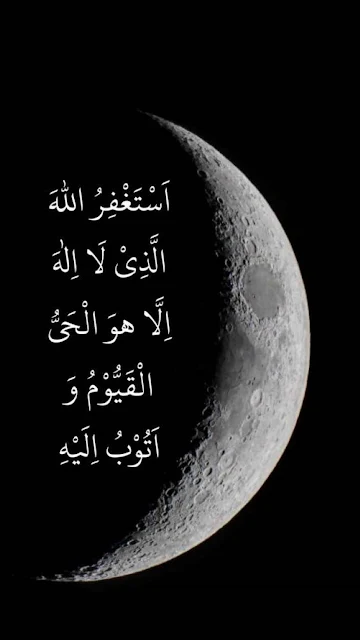 اَسْتَغْفِرُ اللهَ
الَّذِیْ لَا اِلٰهَ
اِلَّا هوَ الْحَیُّ
الْقَیُّوْمُ وَ
اَتُوْبُ اِلَیْهِ